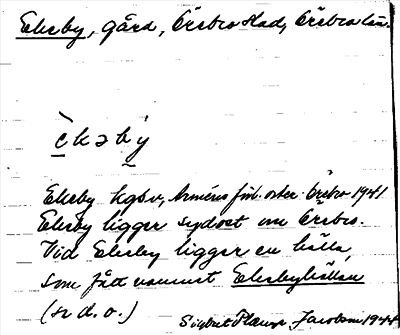 Ekeby, gård, Örebro stad, Örebro län.
èkəbý
Ekeby hgbv, Arméns fört. order. Örebro 1941
Ekeby ligger sydost om Örebro.
Vid Ekeby ligger en källa,
som fått namnet Ekebykällan
(se d. o.)
Sigbrit Plænge Jacobson 1944